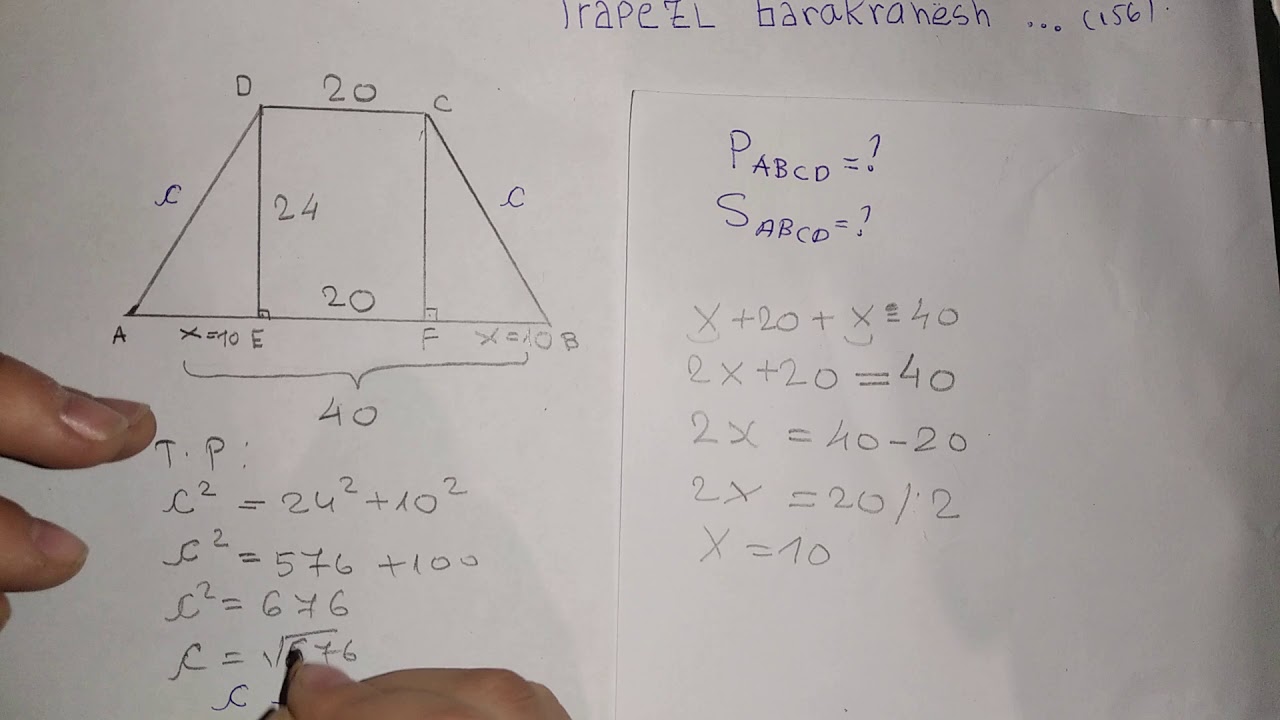 Trapezi barakrahësh ... (156).
D 20 C
c 24 c
20
A x=10 E F x=10 B
40
T.P:
c² = 24² + 10²
c² = 576 + 100
c² = 676
c = √676
c
P ABCD = ?
S ABCD = ?
x + 20 + x = 40
2x + 20 = 40
2x = 40 - 20
2x = 20 /:2
x = 10